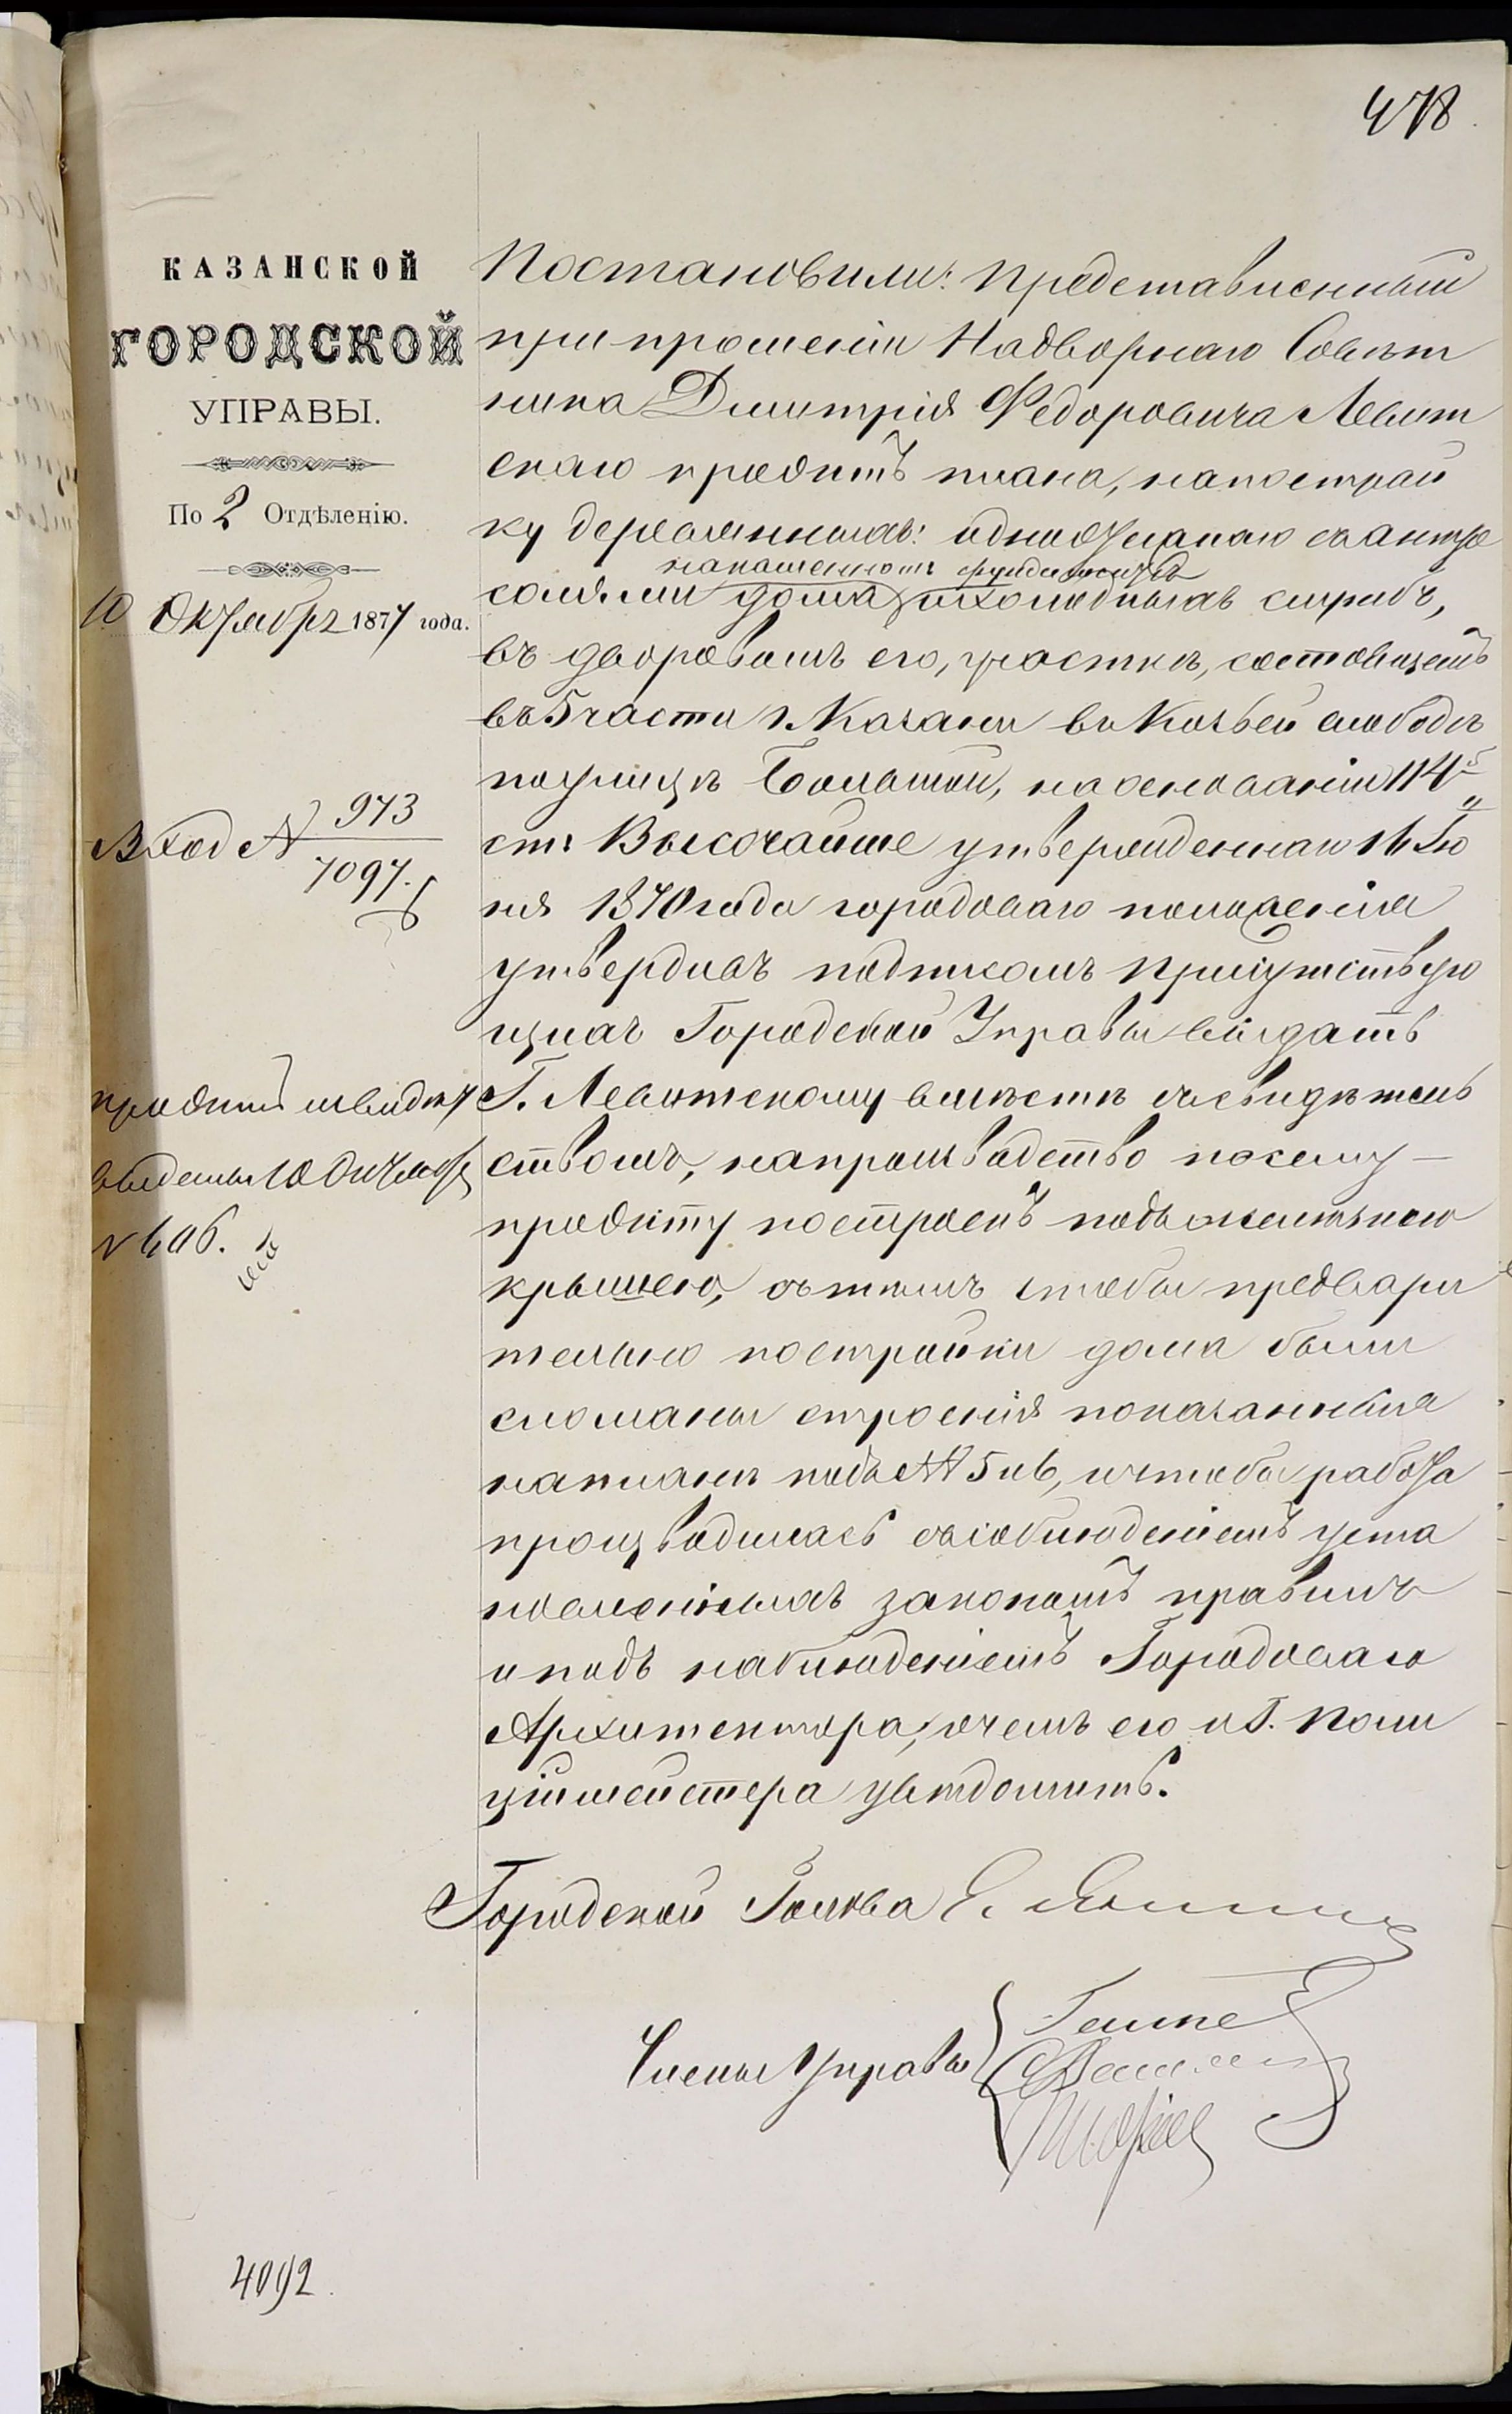 478.
КАЗАНСКОЙ
ГОРОДСКОЙ
УПРАВЫ.
По 2 Отдѣленію.
10 Октября 1877 года.
Вход № 973
7097.
проэктъ и свидѣт
выданы 10 Октября
№ 606.
Постановили: Представленный
при прошеніи Надворнаго Совѣт
ника Димитрія Федоровича Левит
скаго проэктъ плана, на построй
ку деревянныхъ: одноэтажнаго съ антре
на каменномъ фундаментѣ
солями дома и холодныхъ службъ,
въ дворовомъ его, участкѣ, состоящемъ
въ 5 части г. Казани въ Козьей слободѣ
по улицѣ Большой, на основаніи 114й
ст: Высочайше утвержденнаго 16 Iю
ня 1870 года городоваго положенія
утвердивъ подписомъ присутствую
щихъ Городской Управы выдать
Г. Левитскому вмѣстѣ съ свидѣтель
ствомъ, на производство по сему
проэкту построекъ подъ желѣзною
крышею, съ тѣмъ чтобы предвари
тельно постройки дома были
сломаны строенія показанныя
на планѣ подъ №№ 5 и 6, и чтобы работа
производилась съ соблюденіемъ уста
новленныхъ закономъ правилъ
и подъ наблюденіемъ Городоваго
Архитектора, о чемъ его и Г. Поли
ціймейстера увѣдомить.
Городской Голова
Члены Управы
4092.